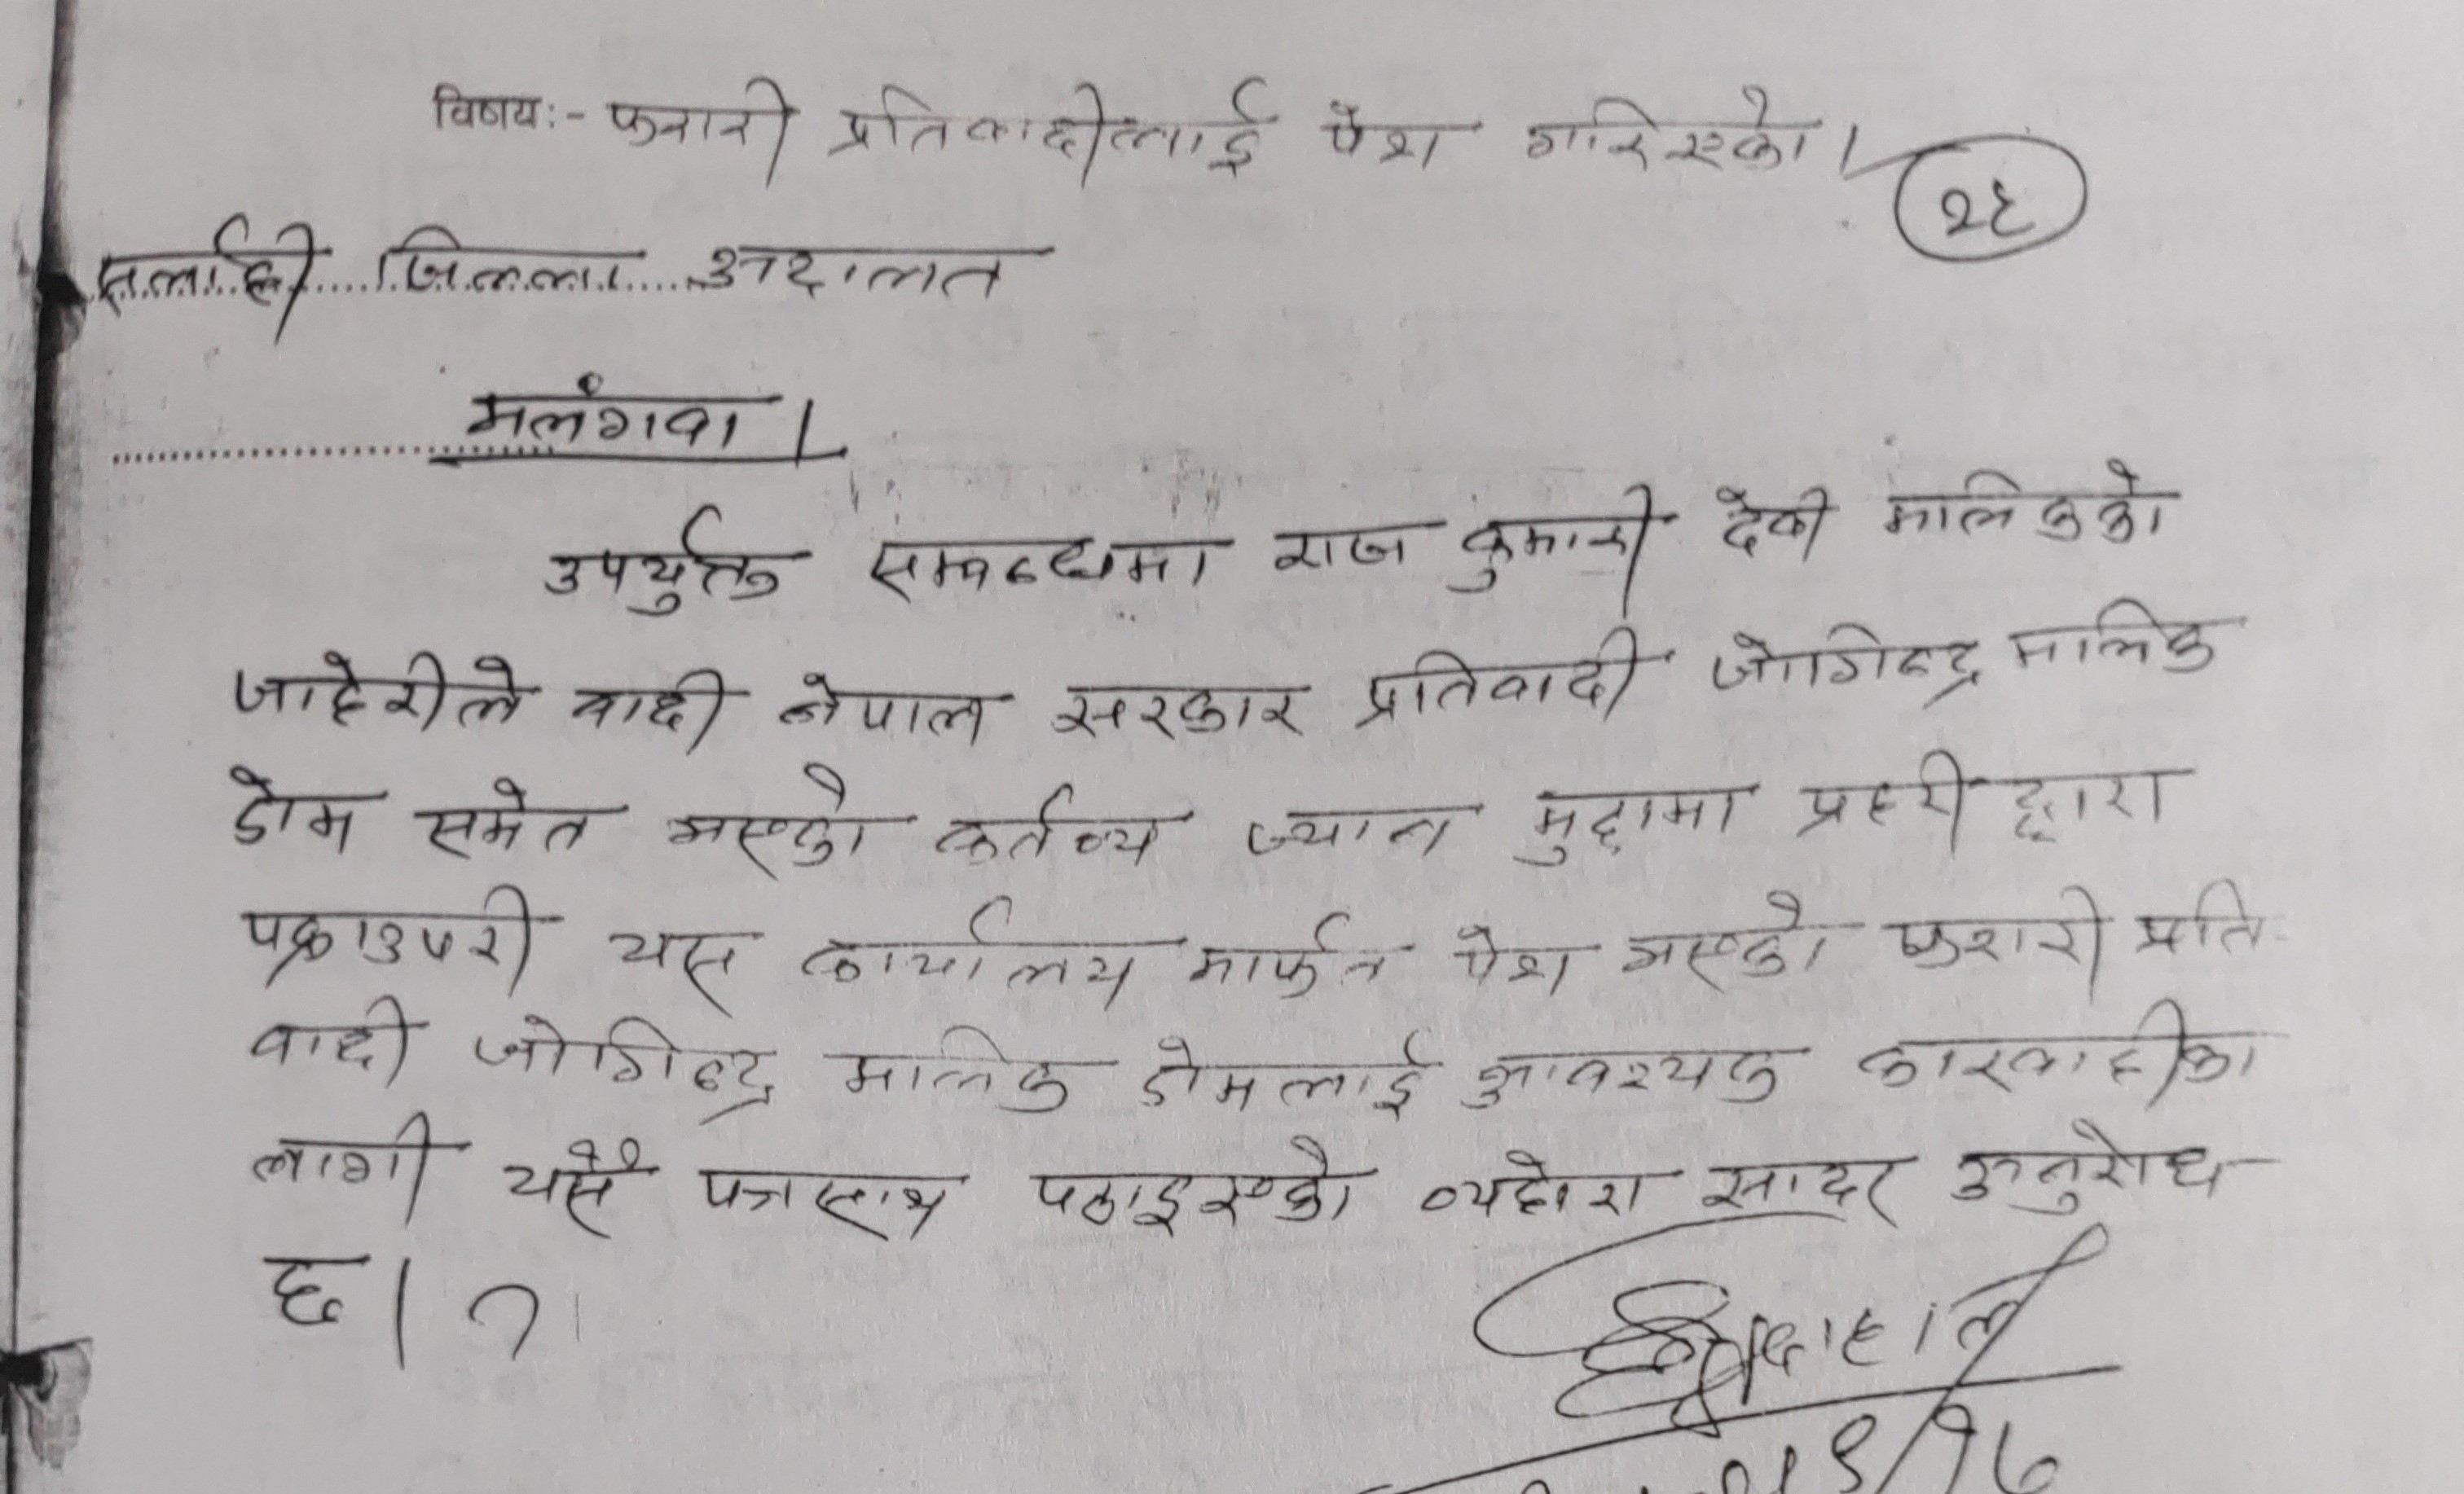 विषय:- फरारी प्रतिवादीलाई पेश गरिएको।
२६
सर्लाही जिल्ला अदालत
मलंगवा।
उपर्युक्त सम्बन्धमा राज कुमारी देवी मालिकको
जाहेरीले वादी नेपाल सरकार प्रतिवादी जोगिन्द्र मालिक
डोम समेत भएको कर्तव्य ज्यान मुद्दामा प्रहरी द्वारा
पक्राउपरी यस कार्यालय मार्फत पेश भएको फरारी प्रति-
वादी जोगिन्द्र मालिक डोमलाई आवश्यक कारवाहीका
लागी यसै पत्रसाथ पठाइएको व्यहोरा सादर अनुरोध
छ।
दाहाल
९/१७